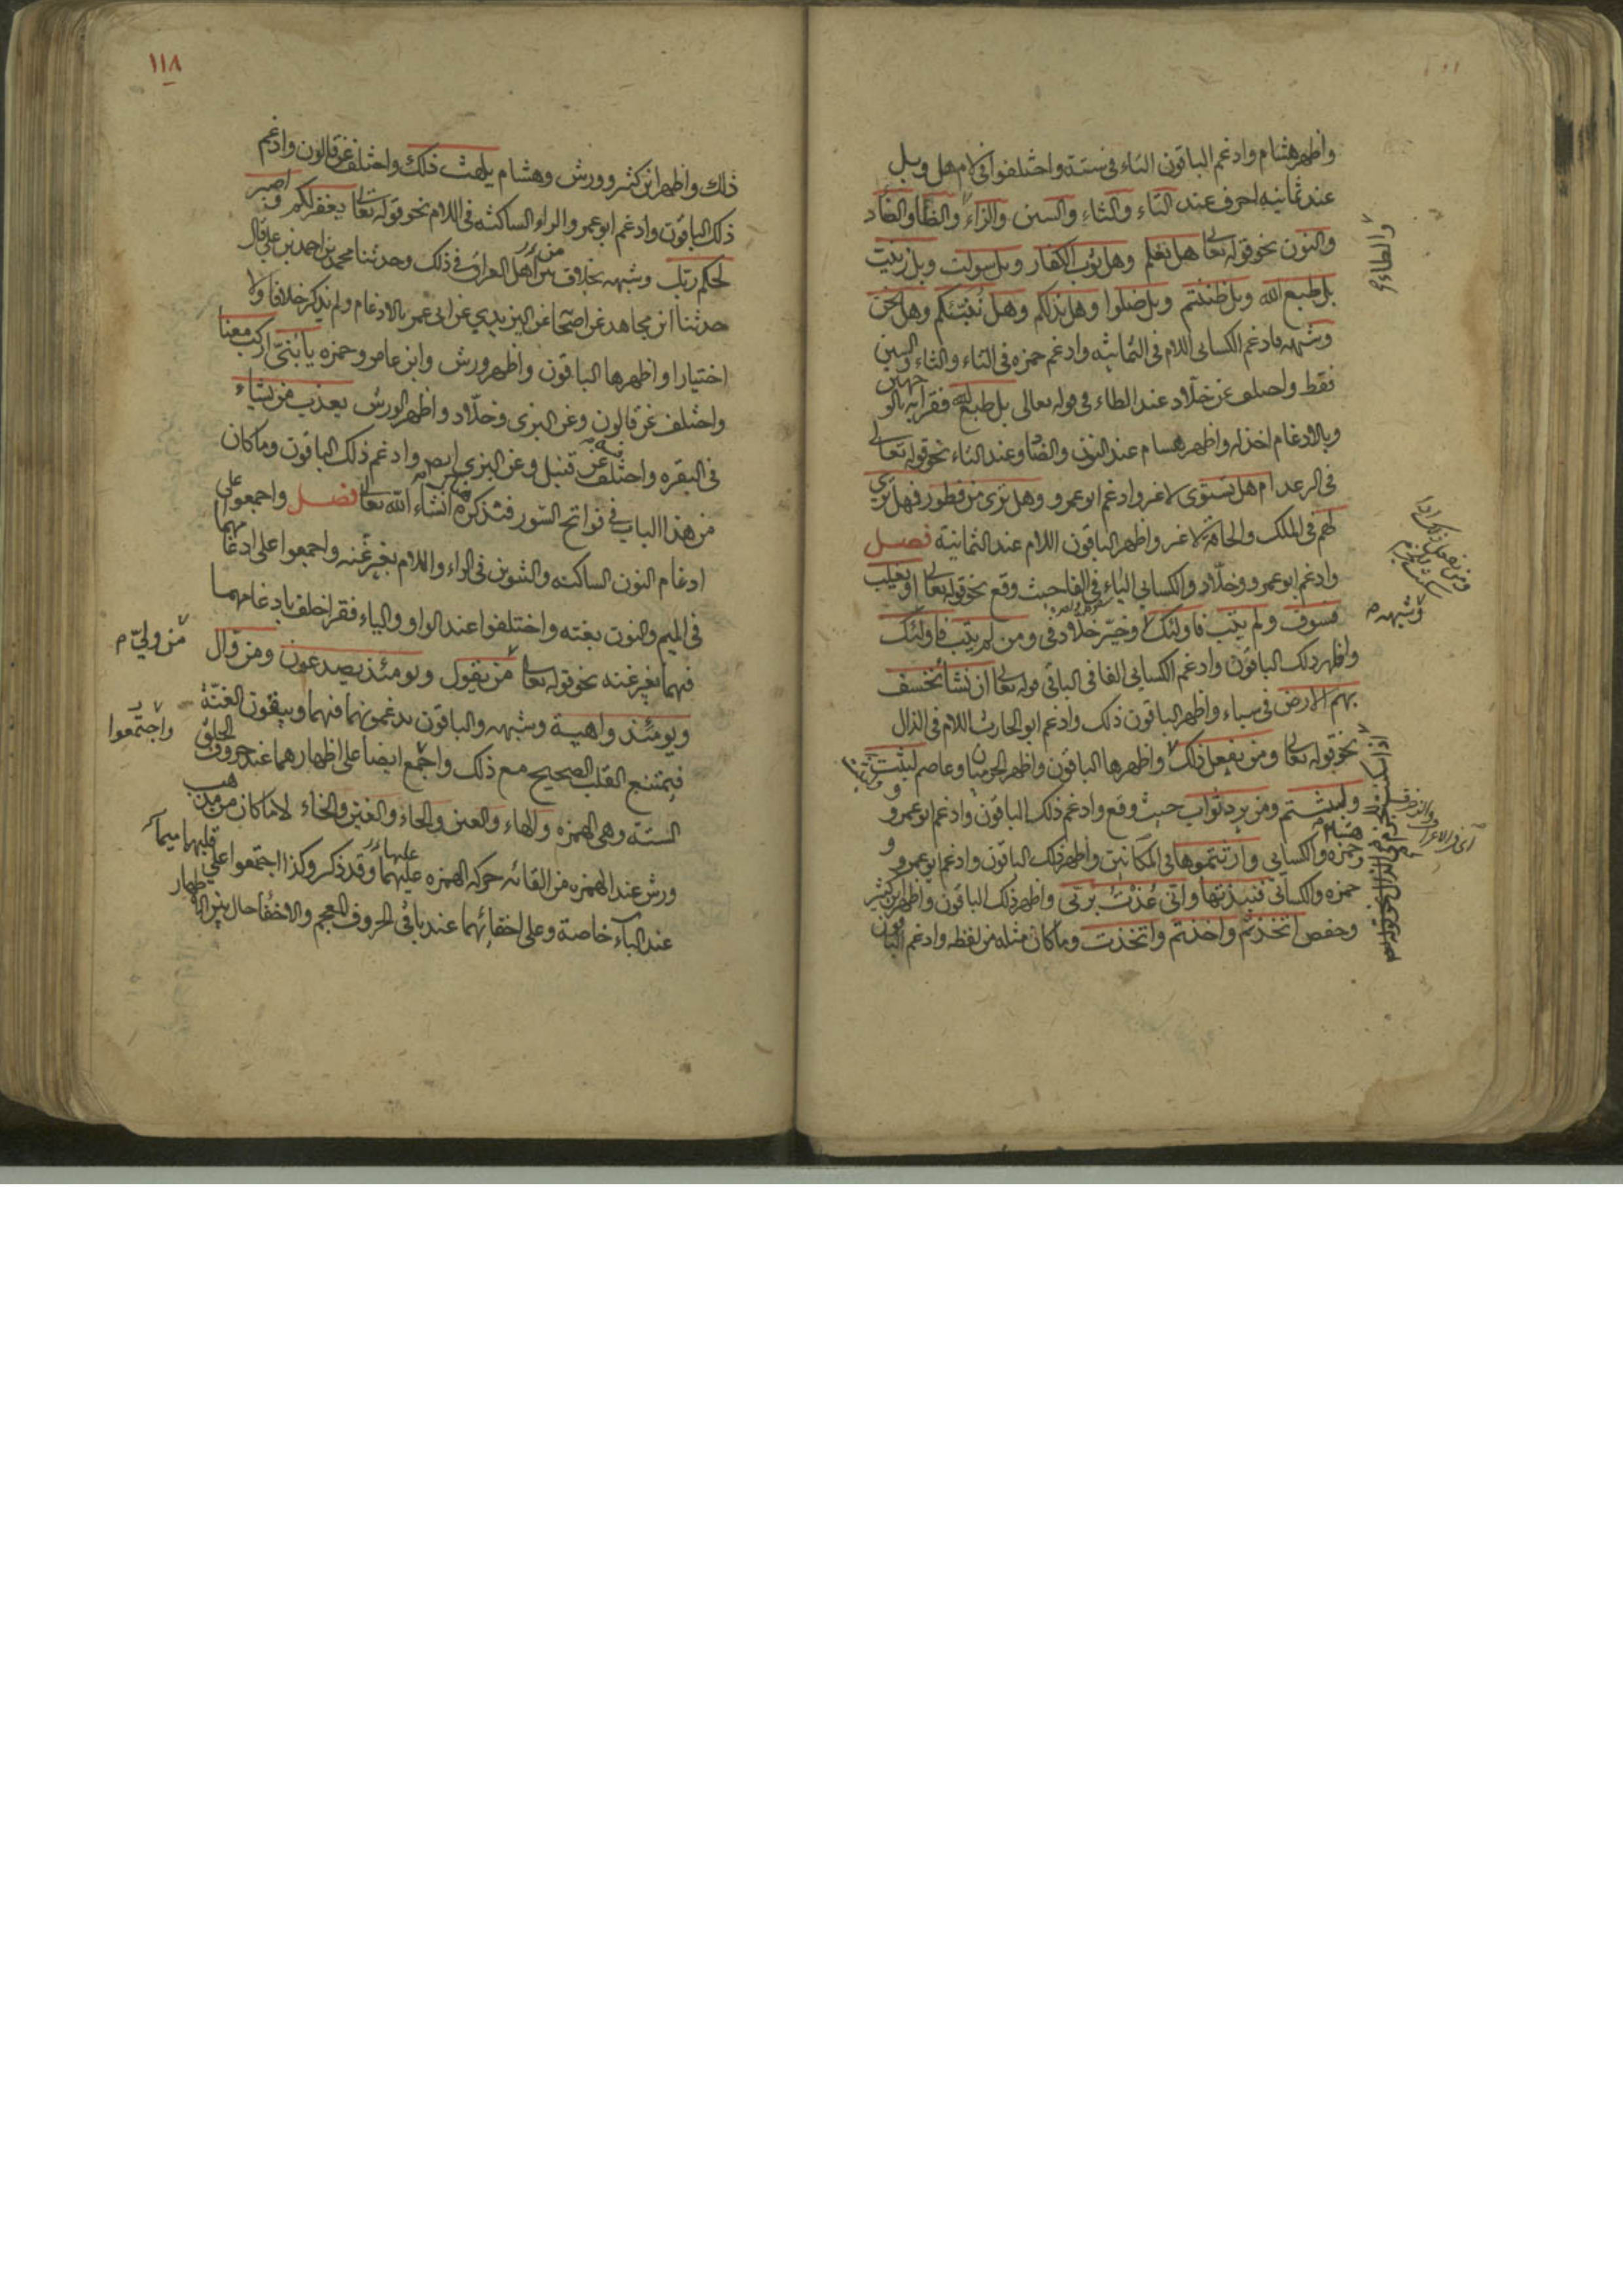 واظهر هشام وادغم الباقون التاء فى ستة واختلفوا فى لام هل وبل
عند ثمانيه احرف عند التاء والثاء والسين والزاء والظا والضاد
والنون نحو قوله تعالى هل تعلم وهل ثوب الكفار وبل سولت وبل زين
بل طبع الله وبل ظننتم وبل ضلوا وهل ندلكم وهل ننبئكم وهل نحن
وشبهه فادغم الكسائى اللام فى الثمانيه وادغم حمزه فى التاء والثاء والسين
فقط واختلف عن خلاد عند الطاء فى قوله تعالى بل طبع الله فقرأته بالوجهين
وبالادغام اخذ له واظهر هشام عند النون والضاد وعند التاء نحو قوله تعالى
فى الرعد ام هل تستوى لا غير وادغم ابو عمرو وهل ترى من فطور فهل ترى
لهم فى الملك والحاقة لا غير واظهر الباقون اللام عند الثمانية فصل
وادغم ابو عمرو وخلاد والكسائى الباء فى الفا حيث وقع نحو قوله تعالى او يغلب
فسوف ولم يتب فاولئك وخير خلاد فى ومن لم يتب فاولئك
واظهر ذلك الباقون وادغم الكسائى الفا فى الباء فى قوله تعالى ان نشا نخسف
بهم الارض فى سباء واظهر الباقون ذلك وادغم ابو الحارث اللام فى الذال
نحو قوله تعالى ومن يفعل ذلك واظهرها الباقون واظهر الحرميان وعاصم لبثت
ولبثتم ومن يرد ثواب حيث وقع وادغم ذلك الباقون وادغم ابو عمرو
وحمزه والكسائى وهشام اورثتموها فى المكانين واظهر ذلك الباقون وادغم ابو عمرو و
حمزه والكسائى فنبذتها وانى عذت بربى واظهر ذلك الباقون واظهر ابن كثير
وحفص اتخذتم واخذتم واتخذت وما كان مثله من لفظه وادغم الباقون
والطاء
وشبهه
١١٨
ذلك واظهر ابن كثير وورش وهشام يلهث ذلك واختلف عن قالون وادغم
ذلك الباقون وادغم ابو عمرو الراء الساكنه فى اللام نحو قوله تعالى يغفر لكم واصبر
لحكم ربك وشبهه بخلاف بين اهل العراق فى ذلك وحدثنا محمد بن احمد بن على قال
حدثنا ابن مجاهد عن اصحابه عن اليزيدي عن ابى عمرو بالادغام ولم يذكر خلافا ولا
اختيارا واظهرها الباقون واظهر ورش وابن عامر وحمزه يا بنىّ اركب معنا
واختلف عن قالون وعن البزى وخلّاد واظهر ورش يعذب من يشاء
فى البقره واختلف عن قنبل وعن البزى ايضا وادغم ذلك الباقون وما كان
من هذا الباب فى فواتح السّور فنذكره انشاء الله تعالى فصل واجمعوا على
ادغام النون الساكنه والتنوين فى الراء واللام بغير غنه واجمعوا على ادغامهما
فى الميم والنون بغنه واختلفوا عند الواو والياء فقرا خلف بادغامهما
فيهما بغير غنه نحو قوله تعالى من يقول ويومئذ يصدعون ومن وال
ويومئذ واهية وشبهه والباقون يدغمونهما فيهما ويبقون الغنّة
فيمتنع القلب الصحيح مع ذلك واجمع ايضا على اظهارهما عند حروف الحلق
الستة وهى الهمزه والهاء والعين والحاء والغين والخاء الا ما كان من مذهب
ورش عند الهمزه من القائه حركه الهمزه عليهما وقد ذكر وكذا اجتمعوا على قلبهما ميما
عند الباء خاصة وعلى اخفائهما عند باقى الحروف المعجم والاخفا حال بين الاظهار
من وليّ
واجتمعوا